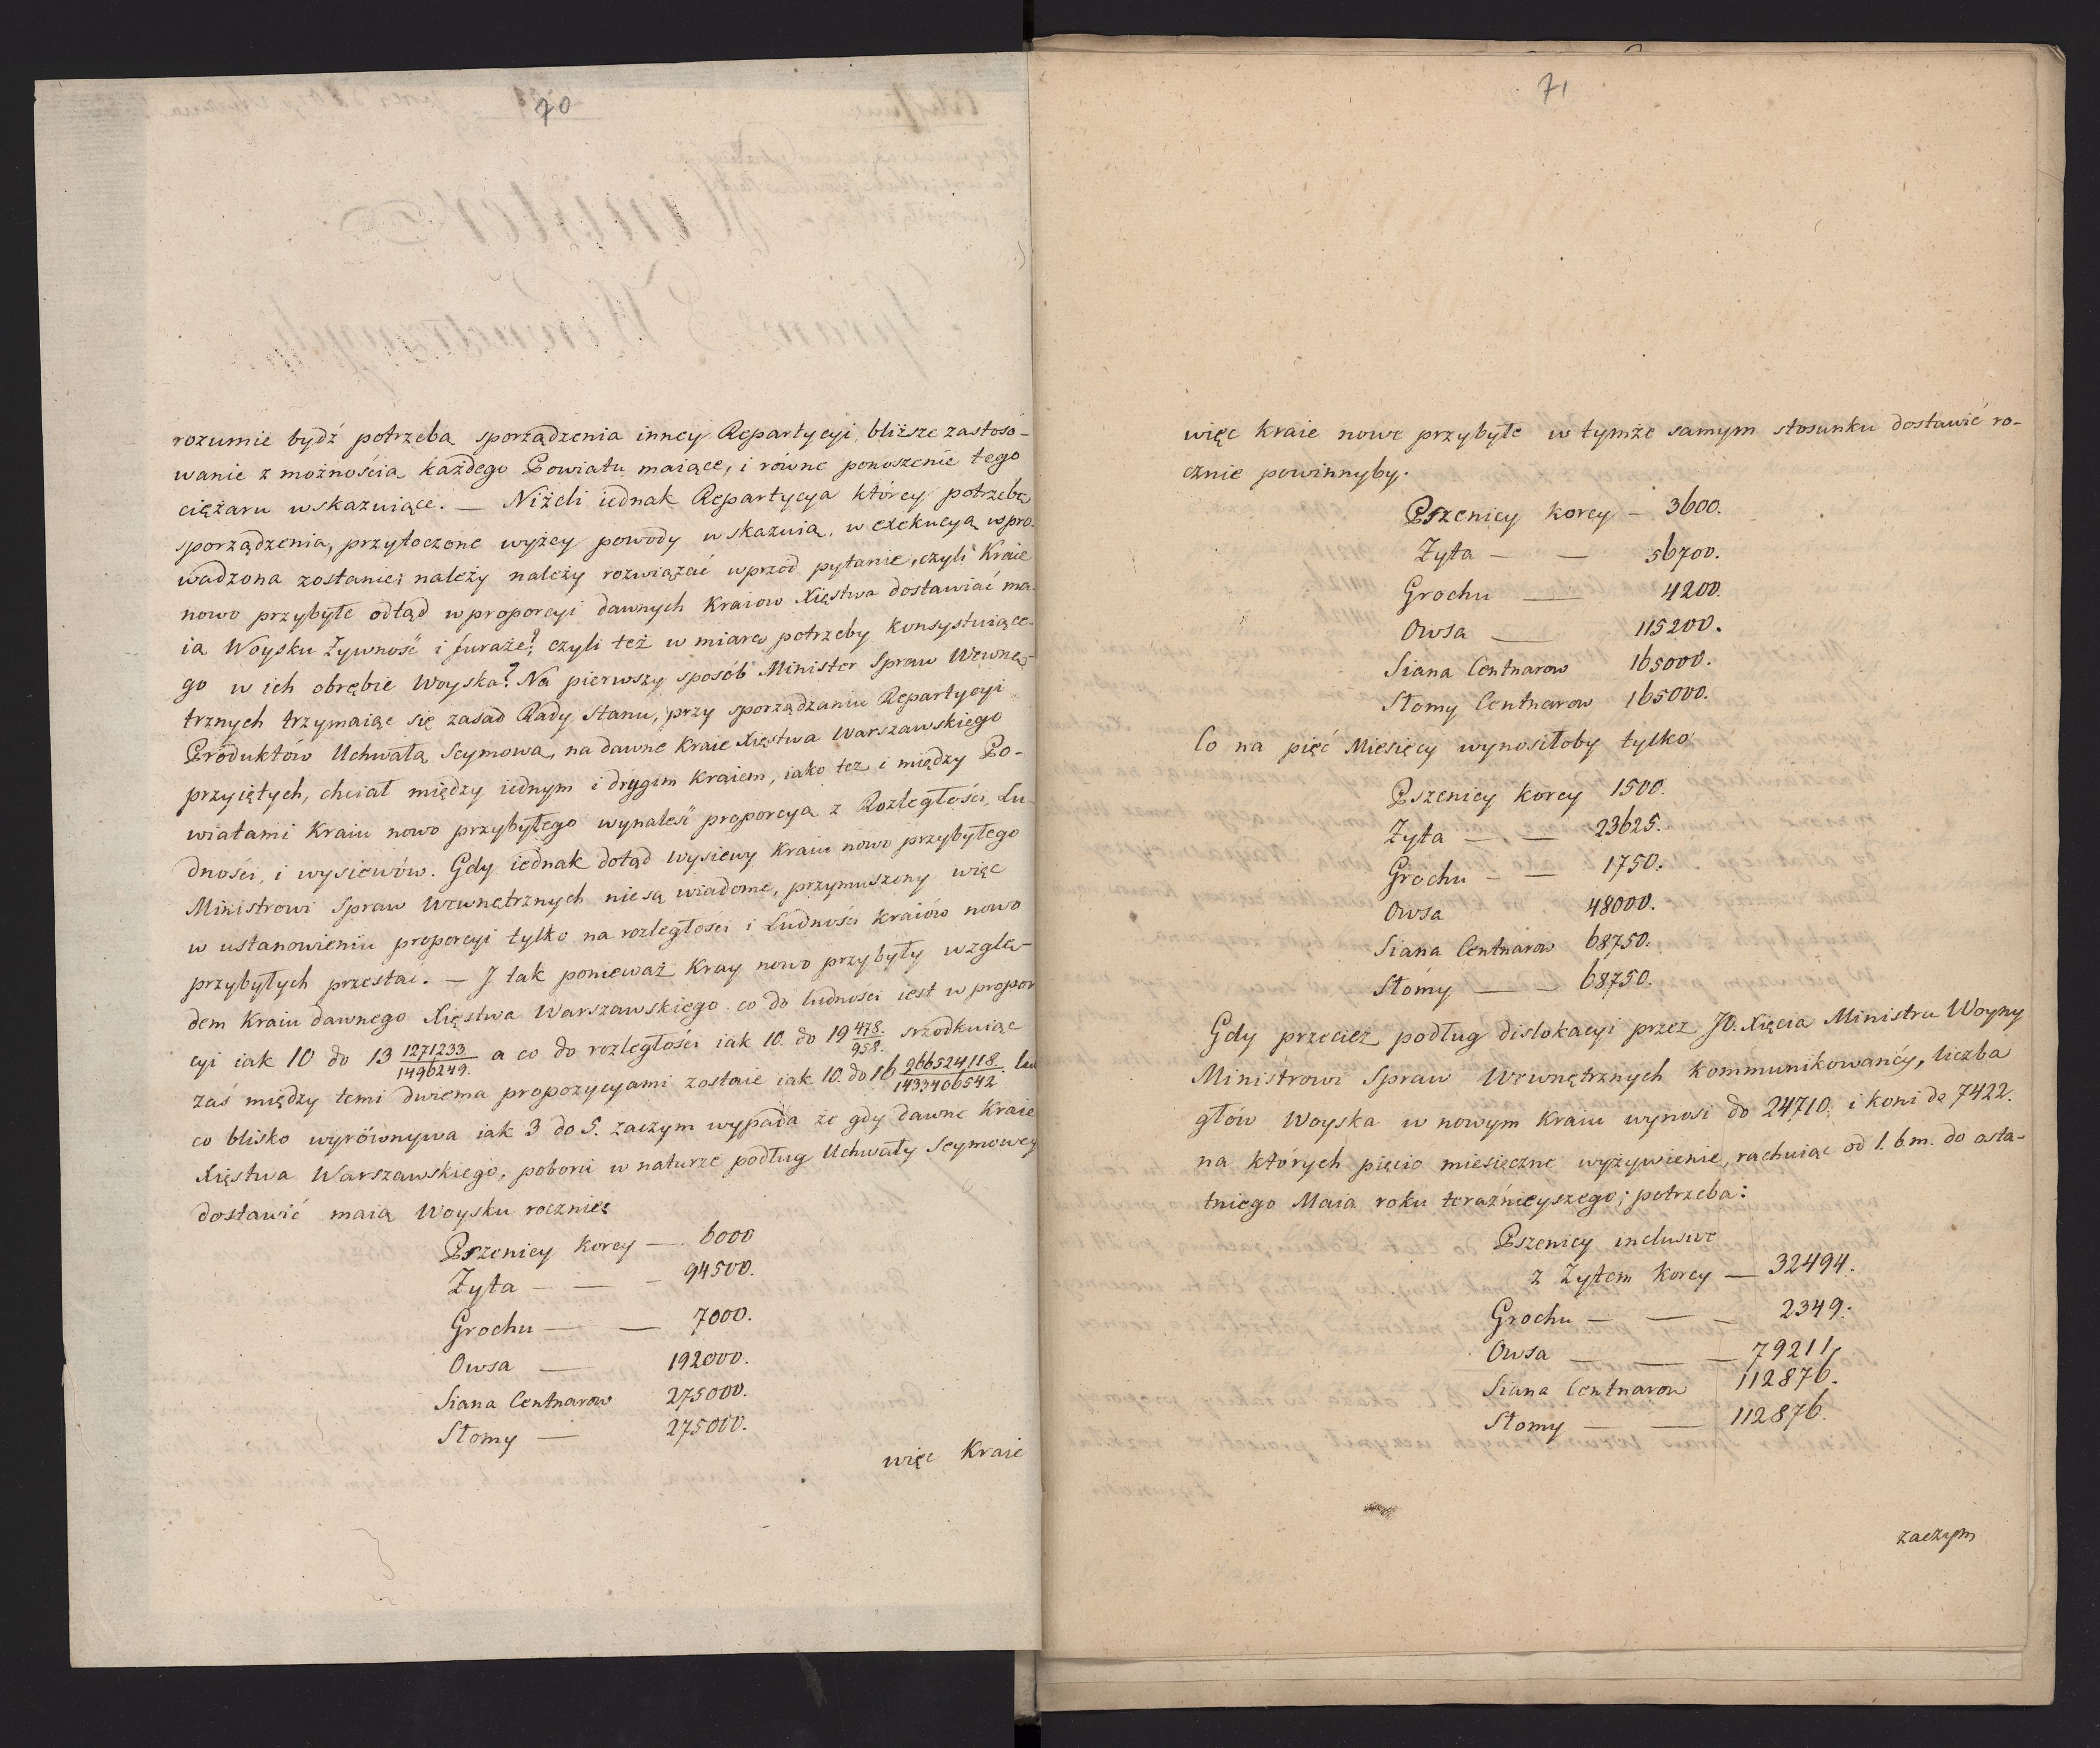 70
rozumie bydź potrzebą sporządzenia inney Repartycyi, bliższe zastoso-
wanie z możnością każdego Powiatu maiące, i równe ponoszenie tego
ciężaru wskazuiące. — Niżeli iednak Repartycya którey potrzebę
sporządzenia, przytoczone wyżey powody wskazuią, w exekucyą wpro-
wadzona zostanie; należy należy rozwiązać wprzod pytanie, czyli Kraie
nowo przybyłe odtąd w proporcyi dawnych Kraiow Xięstwa dostawiać ma-
ią Woysku Żywność i furaże?, czyli też w miarę potrzeby konsystuiące-
go w ich obrębie Woyska? Na pierwszy sposób Minister Spraw Wewnę-
trznych trzymaiąc się zasad Rady Stanu, przy sporządzaniu Repartycyi
Produktów Uchwałą Seymową, na dawne Kraie Xięstwa Warszawskiego
przyiętych, chciał między iednym i drugim Kraiem, iako tez i między Po-
wiatami Kraiu nowo przybyłego wynaleść proporcyą z Rozległości, Lu-
dności, i wysiewów. Gdy iednak dotąd wysiewy Kraiu nowo przybyłego
Ministrowi Spraw Wewnętrznych nie są wiadome, przymuszony więc
w ustanowieniu proporcyi tylko na rozległości i Ludności Kraiów nowo
przybyłych przestać. — I tak ponieważ Kray nowo przybyły wzglę-
dem Kraiu dawnego Xięstwa Warszawskiego co do ludności iest w propor
cyi iak 10 do 13 1271233/1496249. a co do rozległości iak 10. do 19 478./958. srzodkuiąc
zaś między temi dwiema propozycyami zostaie iak 10. do 16 966524118./1433406542
co blisko wyrównywa iak 3 do 5. zaczym wypada że gdy dawne Kraie
Xięstwa Warszawskiego, poboru w naturze podług Uchwały Seymowey
dostawić maią Woysku rocznie
Pszenicy Korcy — 6000
Żyta — — — 94500.
Grochu — — 7000.
Owsa — 192000.
Siana Centnarow 275000.
Słomy — 275000.
więc Kraie
71
więc Kraie nowe przybyłe w tymże samym stosunku dostawić ro-
cznie powinnyby.
Pszenicy Korcy — 3600.
Żyta — — 56700.
Grochu — 4200.
Owsa — 115200.
Siana Centnarow 165000.
Słomy Centnarow 165000.
Co na pięć Miesięcy wynosiłoby tylko
Pszenicy Korcy 1500.
Żyta — — 23625.
Grochu — — 1750.
Owsa 48000.
Siana Centnarow 68750.
Słomy — — 68750.
Gdy przecież podług dislokacyi przez JO. Xięcia Ministra Woyny
Ministrowi Spraw Wewnętrznych kommunikowaney, liczba
głów Woyska w nowym Kraiu wynosi do 24710. i koni do 7422.
na których pięcio miesięczne wyżywienie, rachuiąc od 1. b m. do osta-
tniego Maia roku teraźnieyszego; potrzeba:
Pszenicy inclusive
z Żytem Korcy — 32494.
Grochu — — — 2349.
Owsa — — — 79211,
Siana Centnarow 112876.
Słomy — — 112876.
zaczym